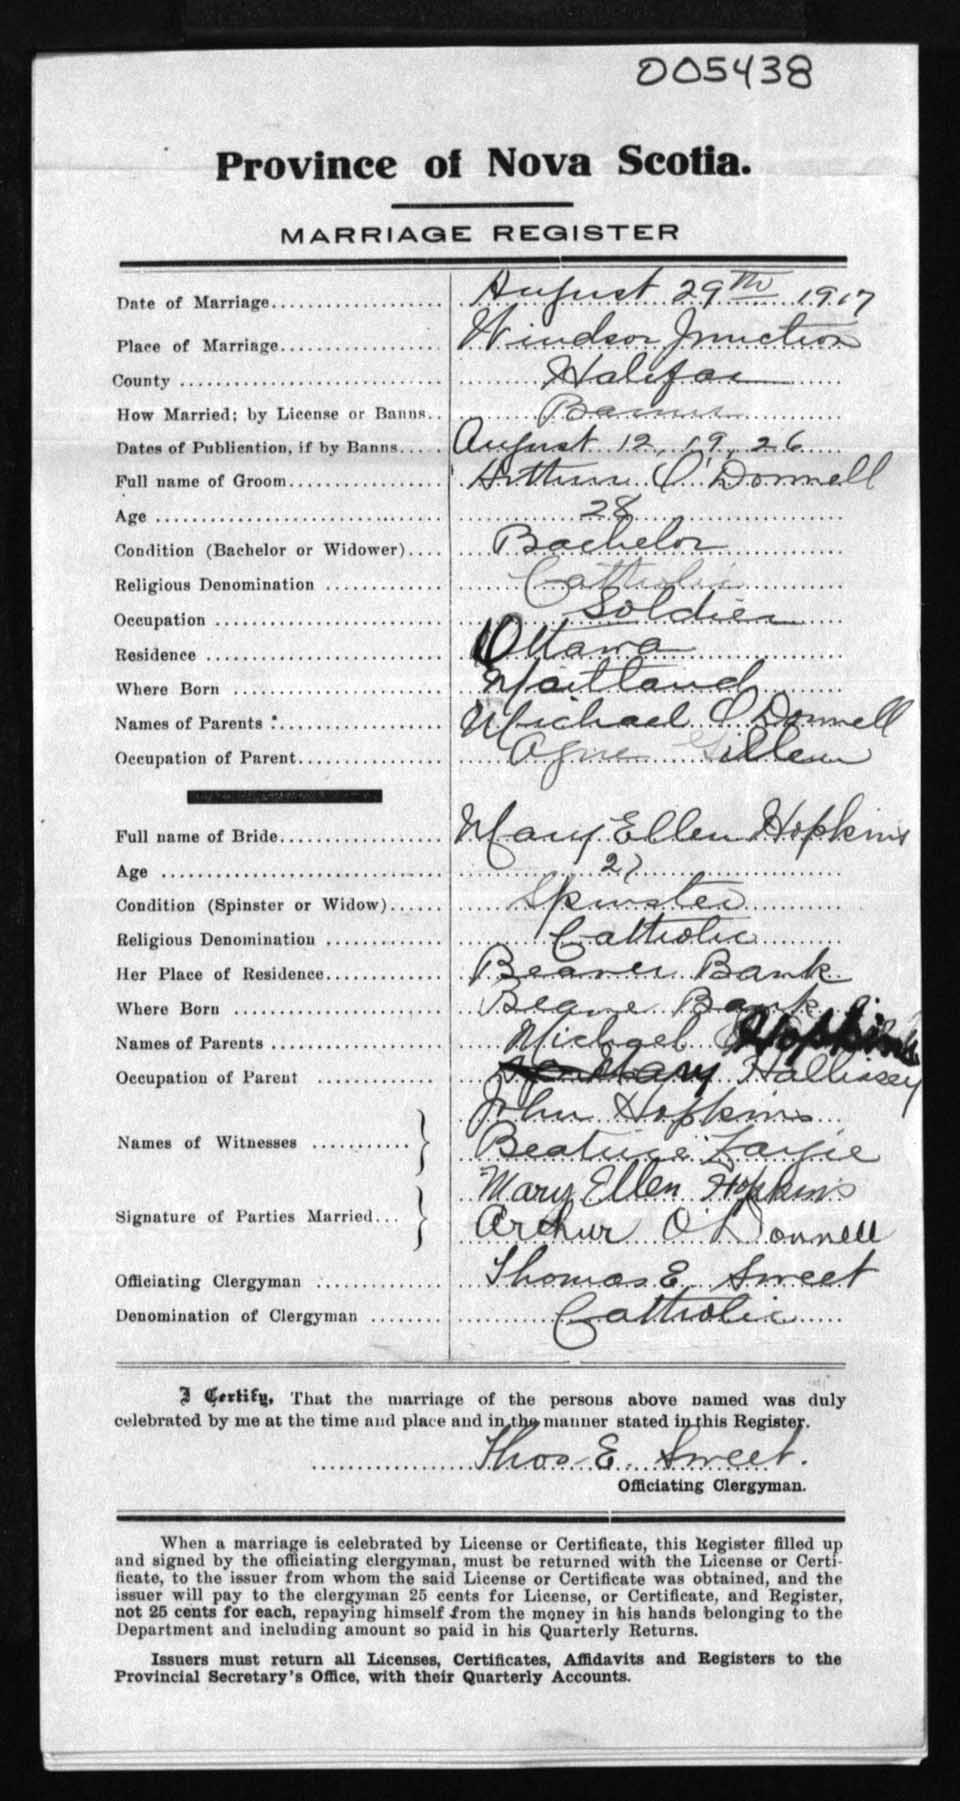 005438
Province of Nova Scotia.
MARRIAGE REGISTER
Date of Marriage.................... August 29th 1917
Place of Marriage................... Windsor Junction
County ............................. Halifax
How Married; by License or Banns.. Banns
Dates of Publication, if by Banns..... August 12, 19, 26
Full name of Groom.................. Arthur O'Donnell
Age ................................ 28
Condition (Bachelor or Widower).... Bachelor
Religious Denomination .............. Catholic
Occupation ......................... Soldier
Residence .......................... Ottawa
Where Born ......................... Maitland
Names of Parents :.................. Michael O'Donnell
Occupation of Parent................ Agnes Gillen
Full name of Bride.................. Mary Ellen Hopkins
Age ................................ 27
Condition (Spinster or Widow)...... Spinster
Religious Denomination .............. Catholic
Her Place of Residence.............. Beaver Bank
Where Born ......................... Beaver Bank
Names of Parents ................... Michael Hopkins
Occupation of Parent ............... Mary Hallissey
John Hopkins
Names of Witnesses ...........
Beatrice
Mary Ellen Hopkins
Signature of Parties Married...
Arthur O'Donnell
Officiating Clergyman .............. Thomas E. Sweet
Denomination of Clergyman ........ Catholic
I Certify, That the marriage of the persons above named was duly
celebrated by me at the time and place and in the manner stated in this Register.
Thos E. Sweet.
Officiating Clergyman.
When a marriage is celebrated by License or Certificate, this Register filled up
and signed by the officiating clergyman, must be returned with the License or Certi-
ficate, to the issuer from whom the said License or Certificate was obtained, and the
issuer will pay to the clergyman 25 cents for License, or Certificate, and Register,
not 25 cents for each, repaying himself from the money in his hands belonging to the
Department and including amount so paid in his Quarterly Returns.
Issuers must return all Licenses, Certificates, Affidavits and Registers to the
Provincial Secretary's Office, with their Quarterly Accounts.